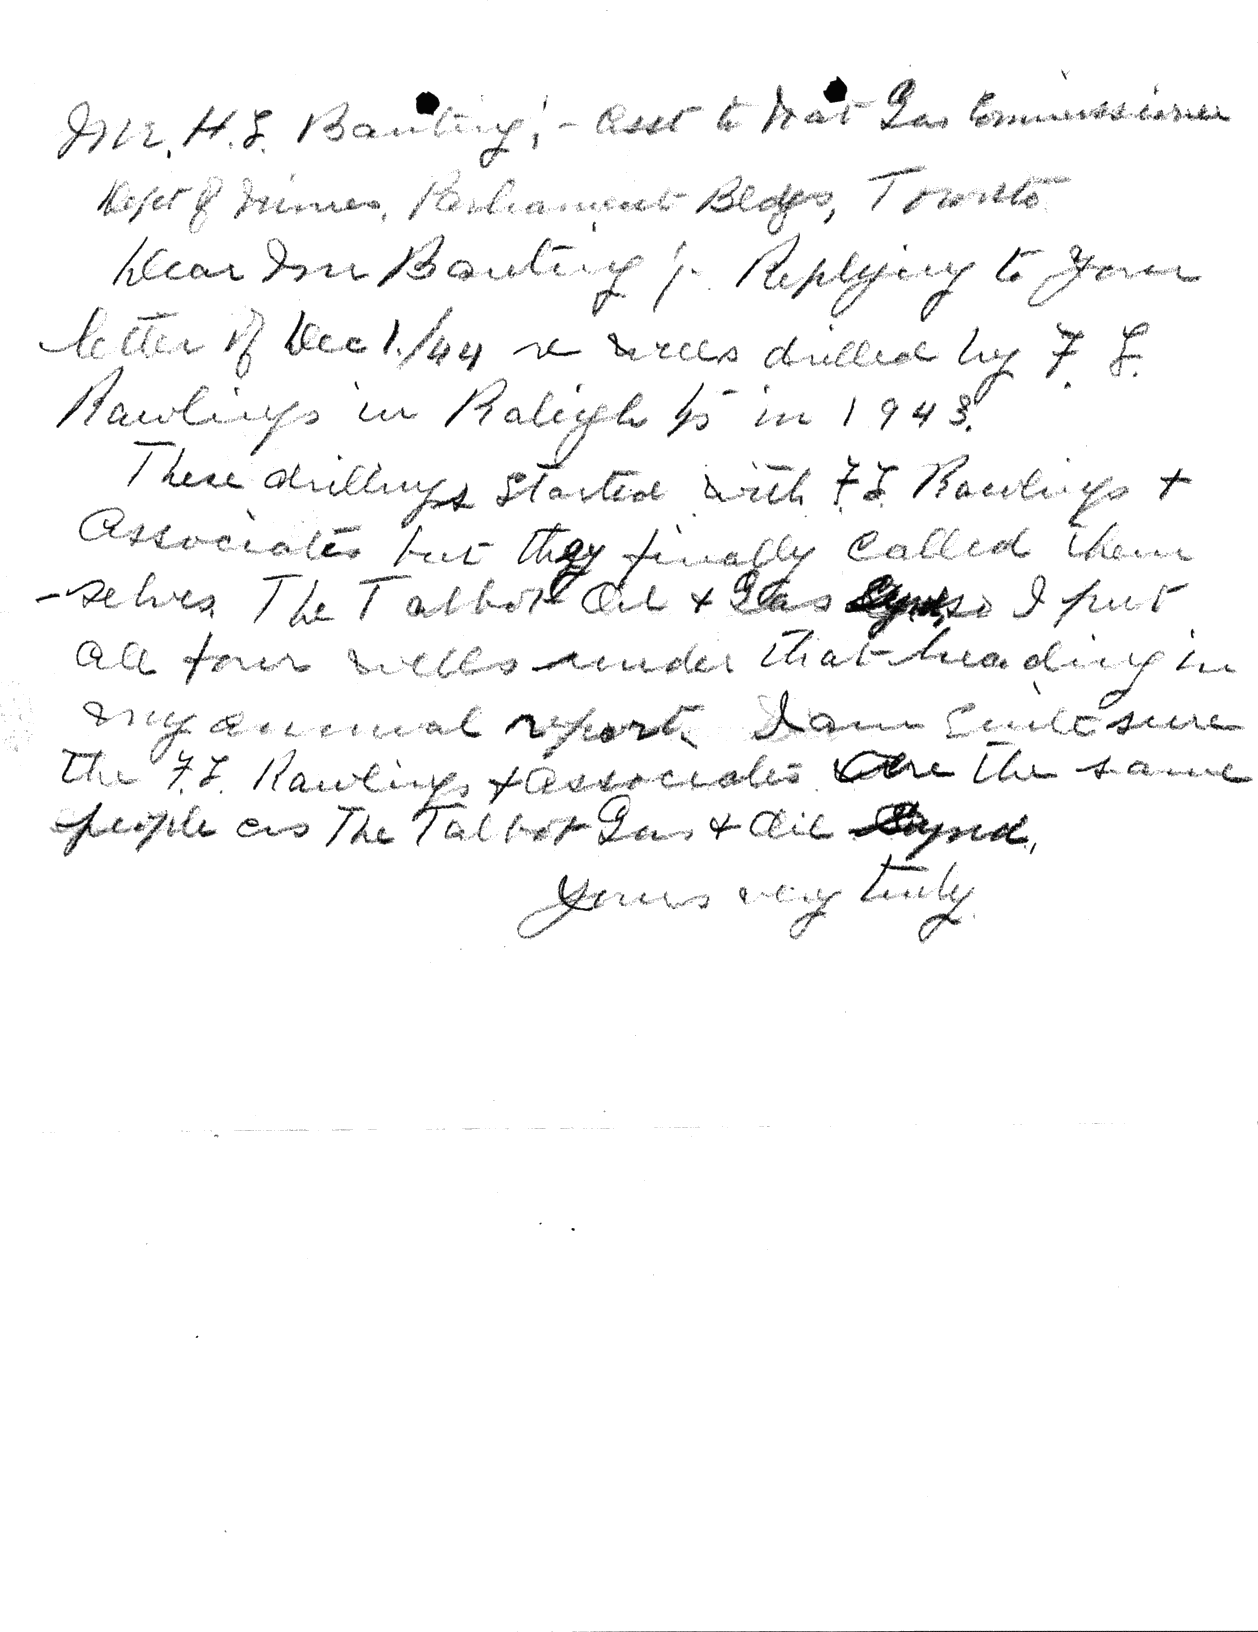 Mr. H. L. Banting;- Asst to Nat Gas Commissioner
Dept of Mines, Parliament Bldgs, Toronto
Dear Mr Banting ;- Replying to your
letter of Dec 1./44 re wells drilled by F. L.
Rawlings in Raleigh tp in 1943.
These drillings started with F.L. Rawlings +
Associates but they finally called them
-selves The Talbot Oil + Gas Synd, so I put
all four wells under that heading in
my annual report. I am quite sure
the F.L. Rawlings + Associates are the same
people as The Talbot Gas + Oil Synd.,
Yours very truly.